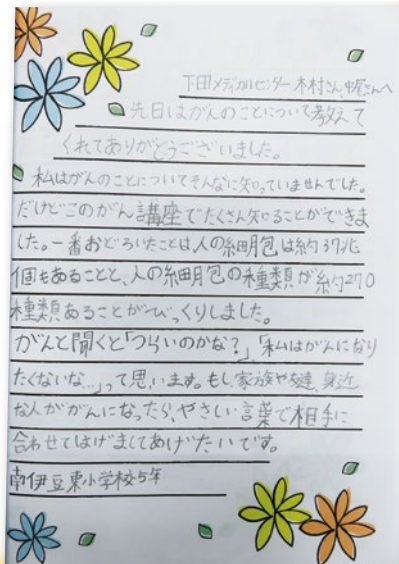 下田メディカルセンター 木村さん、中尾さんへ
先日はがんのことについて教えて
くれてありがとうございました。
私はがんのことについてそんなに知っていませんでした。
だけどこのがん講座でたくさん知ることができま
した。一番おどろいたことは、人の細胞は約37兆
個もあることと、人の細胞の種類が約270
種類あることがびっくりしました。
がんと聞くと「つらいのかな?」、「私はがんになり
たくないな…」って思います。もし、家族や友達、身近
な人ががんになったら、やさしい言葉で相手に
合わせてはげましてあげたいです。
南伊豆東小学校5年